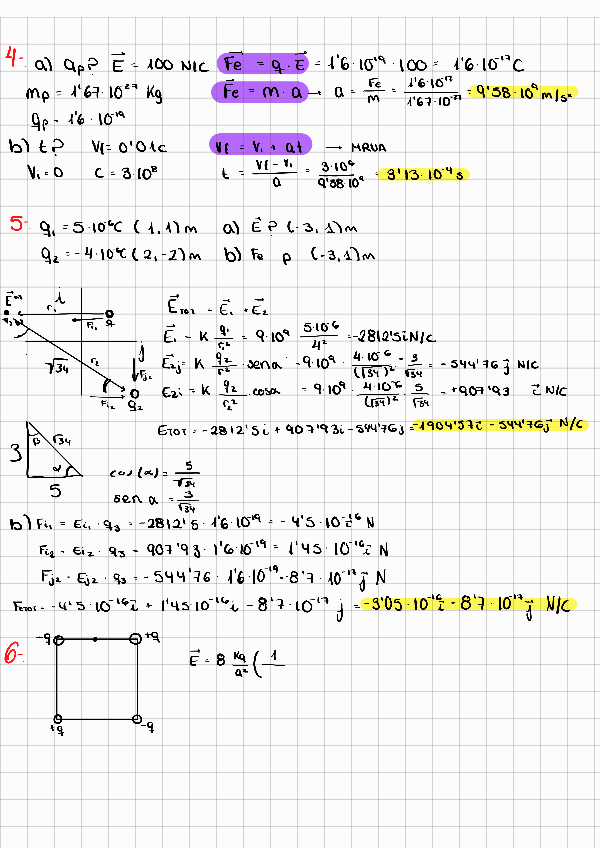 4- a) ap? E⃗ = 100 N/C Fe⃗ = q · E⃗ = 1'6·10⁻¹⁹ · 100 = 1'6·10⁻¹⁷ C
mp = 1'67·10⁻²⁷ Kg Fe⃗ = m · a → a = Fe/m = 1'6·10⁻¹⁷/1'67·10⁻²⁷ = 9'58·10⁹ m/s²
qp = 1'6·10⁻¹⁹
b) t? Vf = 0'01c Vf = Vi + at → MRUA
Vi = 0 c = 3·10⁸ t = Vf - Vi/a = 3·10⁶/9'58·10⁹ = 3'13·10⁻⁴ s
5- q₁ = 5·10⁻⁶C (1,1) m a) E⃗? (-3,1) m
q₂ = -4·10⁻⁶C (2,-2) m b) Fe p (-3,1) m
E⃗ i r₁ Fi₁ q
E⃗TOT = E⃗₁ + E⃗₂
E⃗₁ = K q₁/r₁² = 9·10⁹ 5·10⁻⁶/4² = -2812'5 i N/C
√34 r₂ j Fj₂ Fi₂ q₂
E₂j = K q₂/r₂² sen α = 9·10⁹ · 4·10⁻⁶/(√34)² · 3/√34 = -544'76 j⃗ N/C
E₂i = K q₂/r₂² cos α = 9·10⁹ · 4·10⁻⁶/(√34)² · 5/√34 = +907'93 i⃗ N/C
ETOT = -2812'5i + 907'93i - 544'76j = -1904'57i⃗ - 544'76j⃗ N/C
3 β √34 α 5
cos(α) = 5/√34
sen α = 3/√34
b) Fi₁ = Ei₁ · q₃ = -2812'5 · 1'6·10⁻¹⁹ = -4'5·10⁻¹⁶ i⃗ N
Fi₂ = Ei₂ · q₃ = 907'93 · 1'6·10⁻¹⁹ = 1'45·10⁻¹⁶ i⃗ N
Fj₂ = Ej₂ · q₃ = -544'76 · 1'6·10⁻¹⁹ = -8'7·10⁻¹⁷ j⃗ N
FeTOT = -4'5·10⁻¹⁶ i⃗ + 1'45·10⁻¹⁶ i - 8'7·10⁻¹⁷ j = -3'05·10⁻¹⁶ i⃗ - 8'7·10⁻¹⁷ j⃗ N/C
6- -q +q
E⃗ = 8 Kq/a² ( 1
+q -q